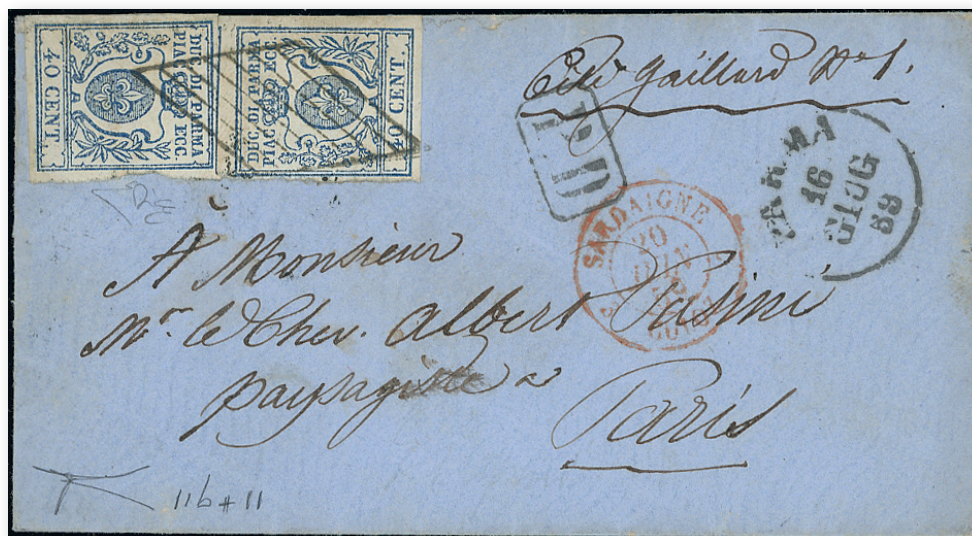 40 CENT.
DUC. DI PARMA
PIAC. ECC.
DUC. DI PARMA
PIAC. ECC.
40 CENT.
Gaillard No 1.
PD
PARMA
16
GIUG
SARDAIGNE
20
JUIN
A Monsieur
Mr. le Chev. Albert Pasini
paysagiste
Paris
11b + 11